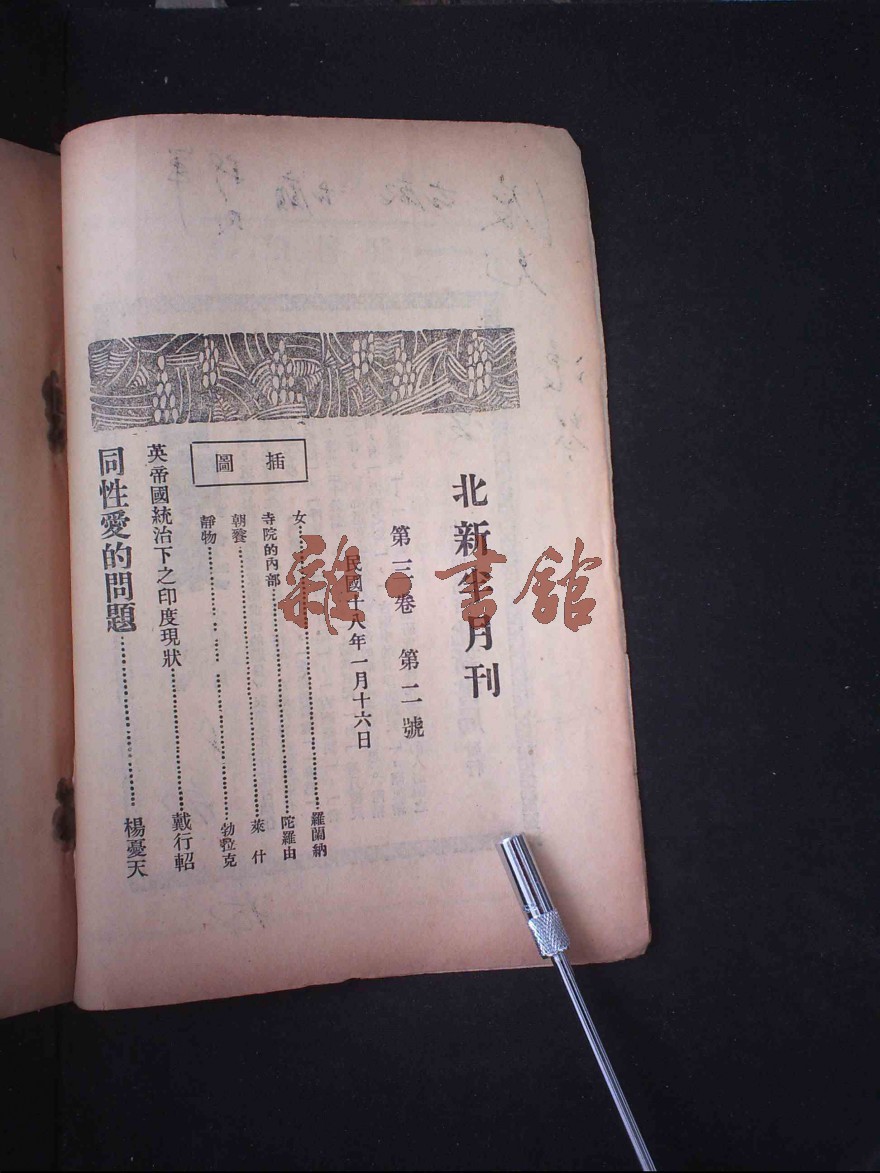 北新半月刊
第三卷 第二號
民國十八年一月十六日
插圖
女……羅蘭納
寺院的內部……陀羅由
朝餐……萊什
靜物……勃拉克
英帝國統治下之印度現狀……戴行軺
同性愛的問題……楊憂天
雜·書館